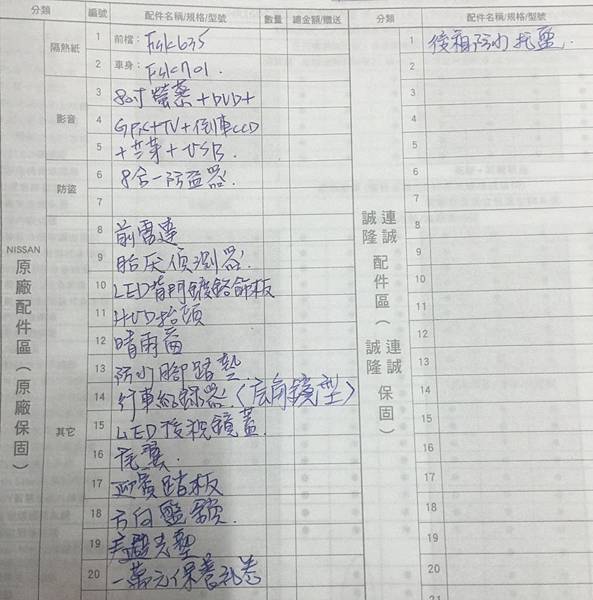 分類 編號 配件名稱/規格/型號 數量 總金額/贈送 分類 配件名稱/規格/型號
隔熱紙 1 前檔：FSK635 1 後箱防水托盤
2 車身：FSK701 2
影音 3 8吋螢幕+DVD+ 3
4 GPS+TV+倒車CCD 4
5 +藍芽+USB 5
防盜 6 8合一防盜器 6
7 7
NISSAN 原廠配件區（原廠保固） 其它 8 前雷達 連誠誠隆配件區（連誠誠隆保固） 8
9 胎压偵測器 9
10 LED背門鍍鉻飾板 10
11 HUD抬頭 11
12 晴雨窗 12
13 防水腳踏墊 13
14 行車紀錄器（廣角鏡型） 14
15 LED後視鏡蓋 15
16 尾翼 16
17 迎賓踏板 17
18 方向盤鎖 18
19 19
20 一萬元保養礼卷 20
21